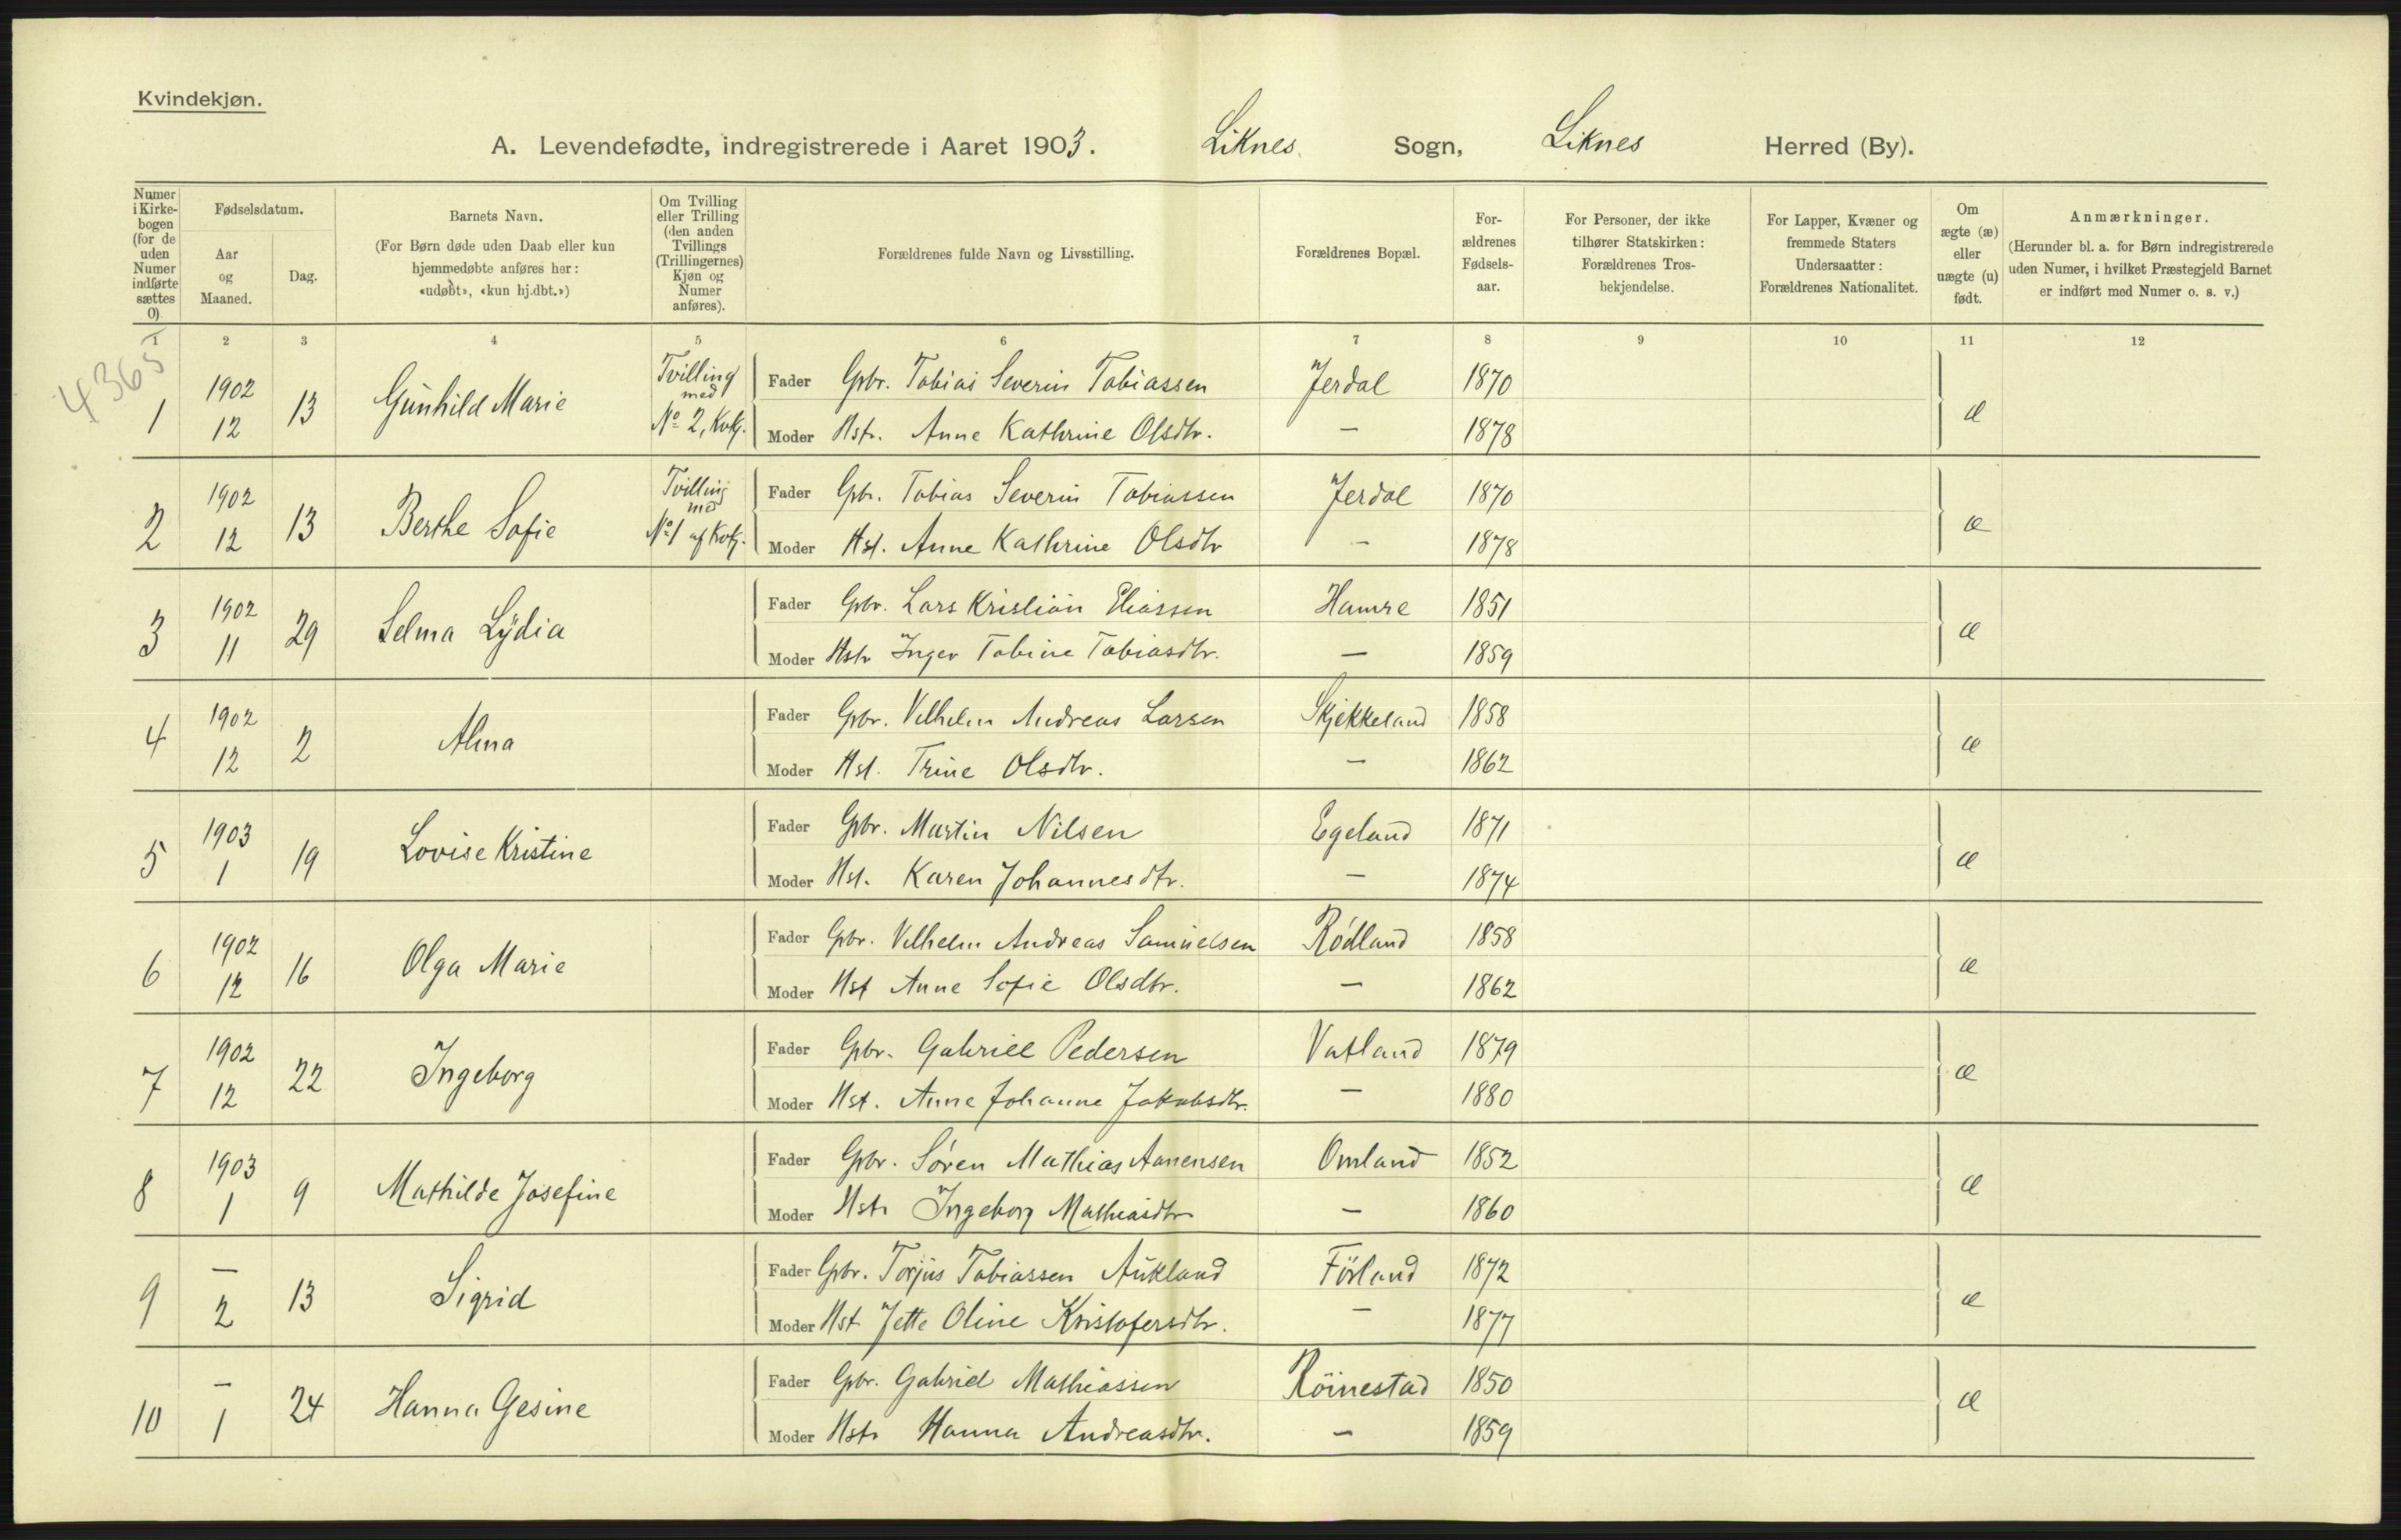 Kvindekjøn.
A. Levendefødte, indregistrerede i Aaret 1903. Liknes Sogn, Liknes Herred (By).
Numer i Kirkebogen (for de uden Numer indførte sættes 0)
Fødselsdatum.
Aar og Maaned.
Dag.
Barnets Navn.
(For Børn døde uden Daab eller kun hjemmedøbte anføres her: «udøbt», «kun hj.dbt.»)
Om Tvilling eller Trilling (den anden Tvillings (Trillingernes) Kjøn og Numer anføres).
Forældrenes fulde Navn og Livsstilling.
Forældrenes Bopæl.
Forældrenes Fødselsaar.
For Personer, der ikke tilhører Statskirken: Forældrenes Trosbekjendelse.
For Lapper, Kvæner og fremmede Staters Undersaatter: Forældrenes Nationalitet.
Om ægte (æ) eller uægte (u) født.
Anmærkninger.
(Herunder bl. a. for Børn indregistrerede uden Numer, i hvilket Præstegjeld Barnet er indført med Numer o. s. v.)
1 2 3 4 5 6 7 8 9 10 11 12
4365
1 1902 12 13 Gunhild Marie Tvilling med No 2, Kvkj.
Fader Gbr. Tobias Severin Tobiassen Jerdal 1870 æ
Moder Hstr. Anne Kathrine Olsdtr. — 1878
2 1902 12 13 Berthe Sofie Tvilling med No 1 af Kvkj.
Fader Gbr. Tobias Severin Tobiassen Jerdal 1870 æ
Moder Hst. Anne Kathrine Olsdtr — 1878
3 1902 11 29 Selma Lydia
Fader Gbr. Lars Kristian Eliassen Hamre 1851 æ
Moder Hstr Inger Tobine Tobiasdtr. — 1859
4 1902 12 2 Alma
Fader Gbr. Vilhelm Andreas Larsen Skjekkeland 1858 æ
Moder Hst. Trine Olsdtr. — 1862
5 1903 1 19 Lovise Kristine
Fader Gbr. Martin Nilsen Egeland 1871 æ
Moder Hst. Karen Johannesdtr. — 1874
6 1902 12 16 Olga Marie
Fader Gbr. Vilhelm Andreas Samuelsen Rödland 1858 æ
Moder Hst Anne Sofie Olsdtr. — 1862
7 1902 12 22 Ingeborg
Fader Gbr. Gabriel Pedersen Vatland 1879 æ
Moder Hst. Anne Johanne Jakobsdtr. — 1880
8 1903 1 9 Mathilde Josefine
Fader Gbr. Søren Mathias Aanensen Omland 1852 æ
Moder Hstr Ingeborg Mathiasdtr — 1860
9 — 2 13 Sigrid
Fader Gbr. Torjus Tobiassen Aukland Förland 1872 æ
Moder Hst Jette Oline Kristofersdtr. — 1877
10 — 1 24 Hanna Gesine
Fader Gbr. Gabriel Mathiassen Röinestad 1850 æ
Moder Hstr Hanna Andreasdtr. — 1859